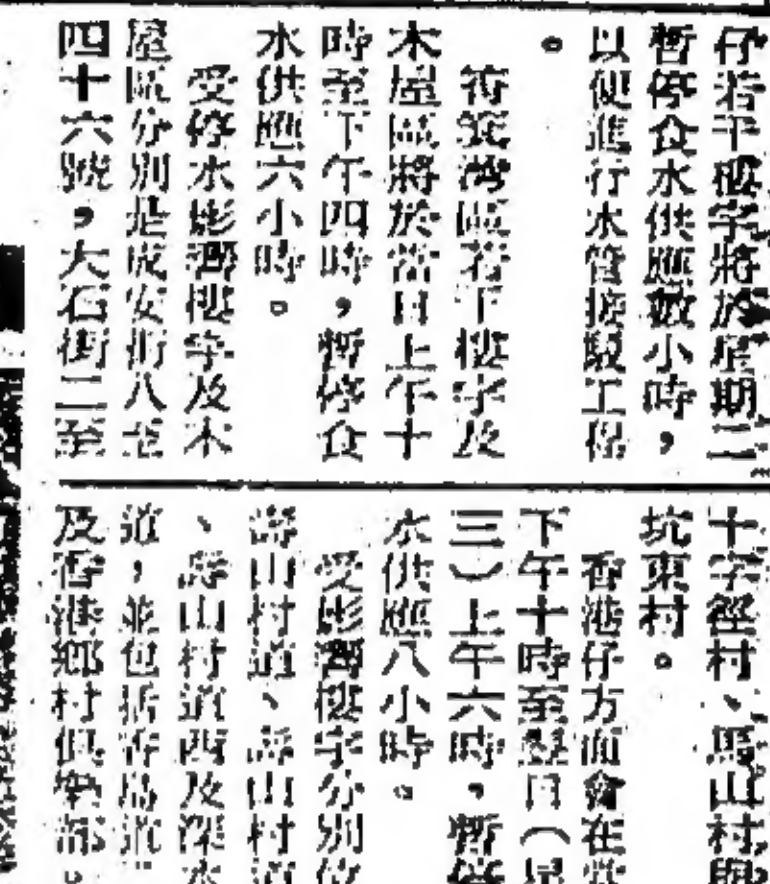 仔若干樓宇將於星期二
暫停食水供應數小時，
以便進行水管接駁工程
。
筲箕灣區若干樓宇及
木屋區將於當日上午十
時至下午四時，暫停食
水供應六小時。
受停水影響樓宇及木
屋區分別是成安街八至
四十六號，大石街二至
十字徑村、馬山村與
坑東村。
香港仔方面會在當
下午十時至翌日（星
三）上午六時，暫停
水供應八小時。
受影響樓宇分別位
壽山村道、壽山村道
、壽山村道西及深水
道，並包括香島道
及香港鄉村俱樂部。